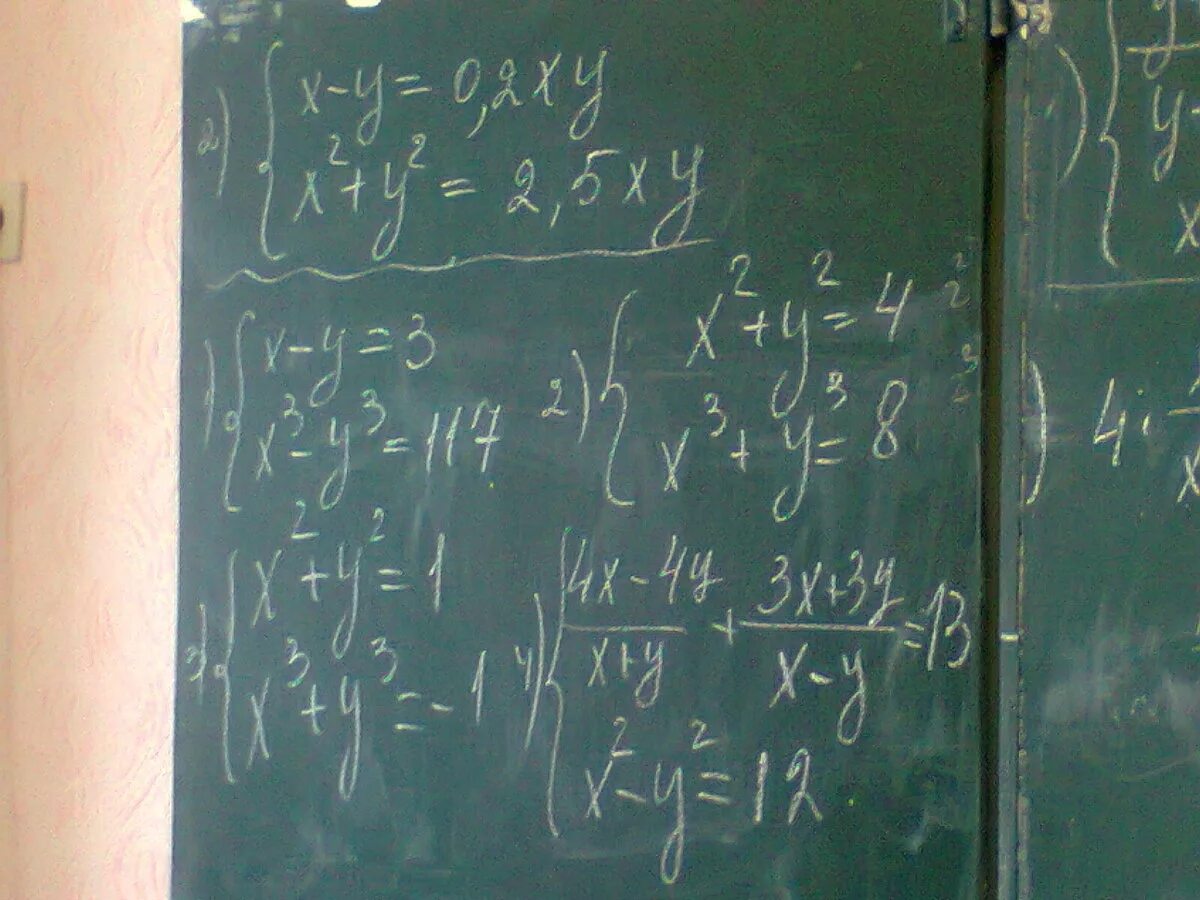 2) { x-y=0,2xy
x²+y²=2,5xy
1) { x-y=3
x³-y³=117
2) { x²+y²=4
x³+y³=8
3) { x²+y²=1
x³+y³=-1
4) { (4x-4y)/(x+y) + (3x+3y)/(x-y) = 13
x²-y²=12
) {
y-
x
) 4·
x